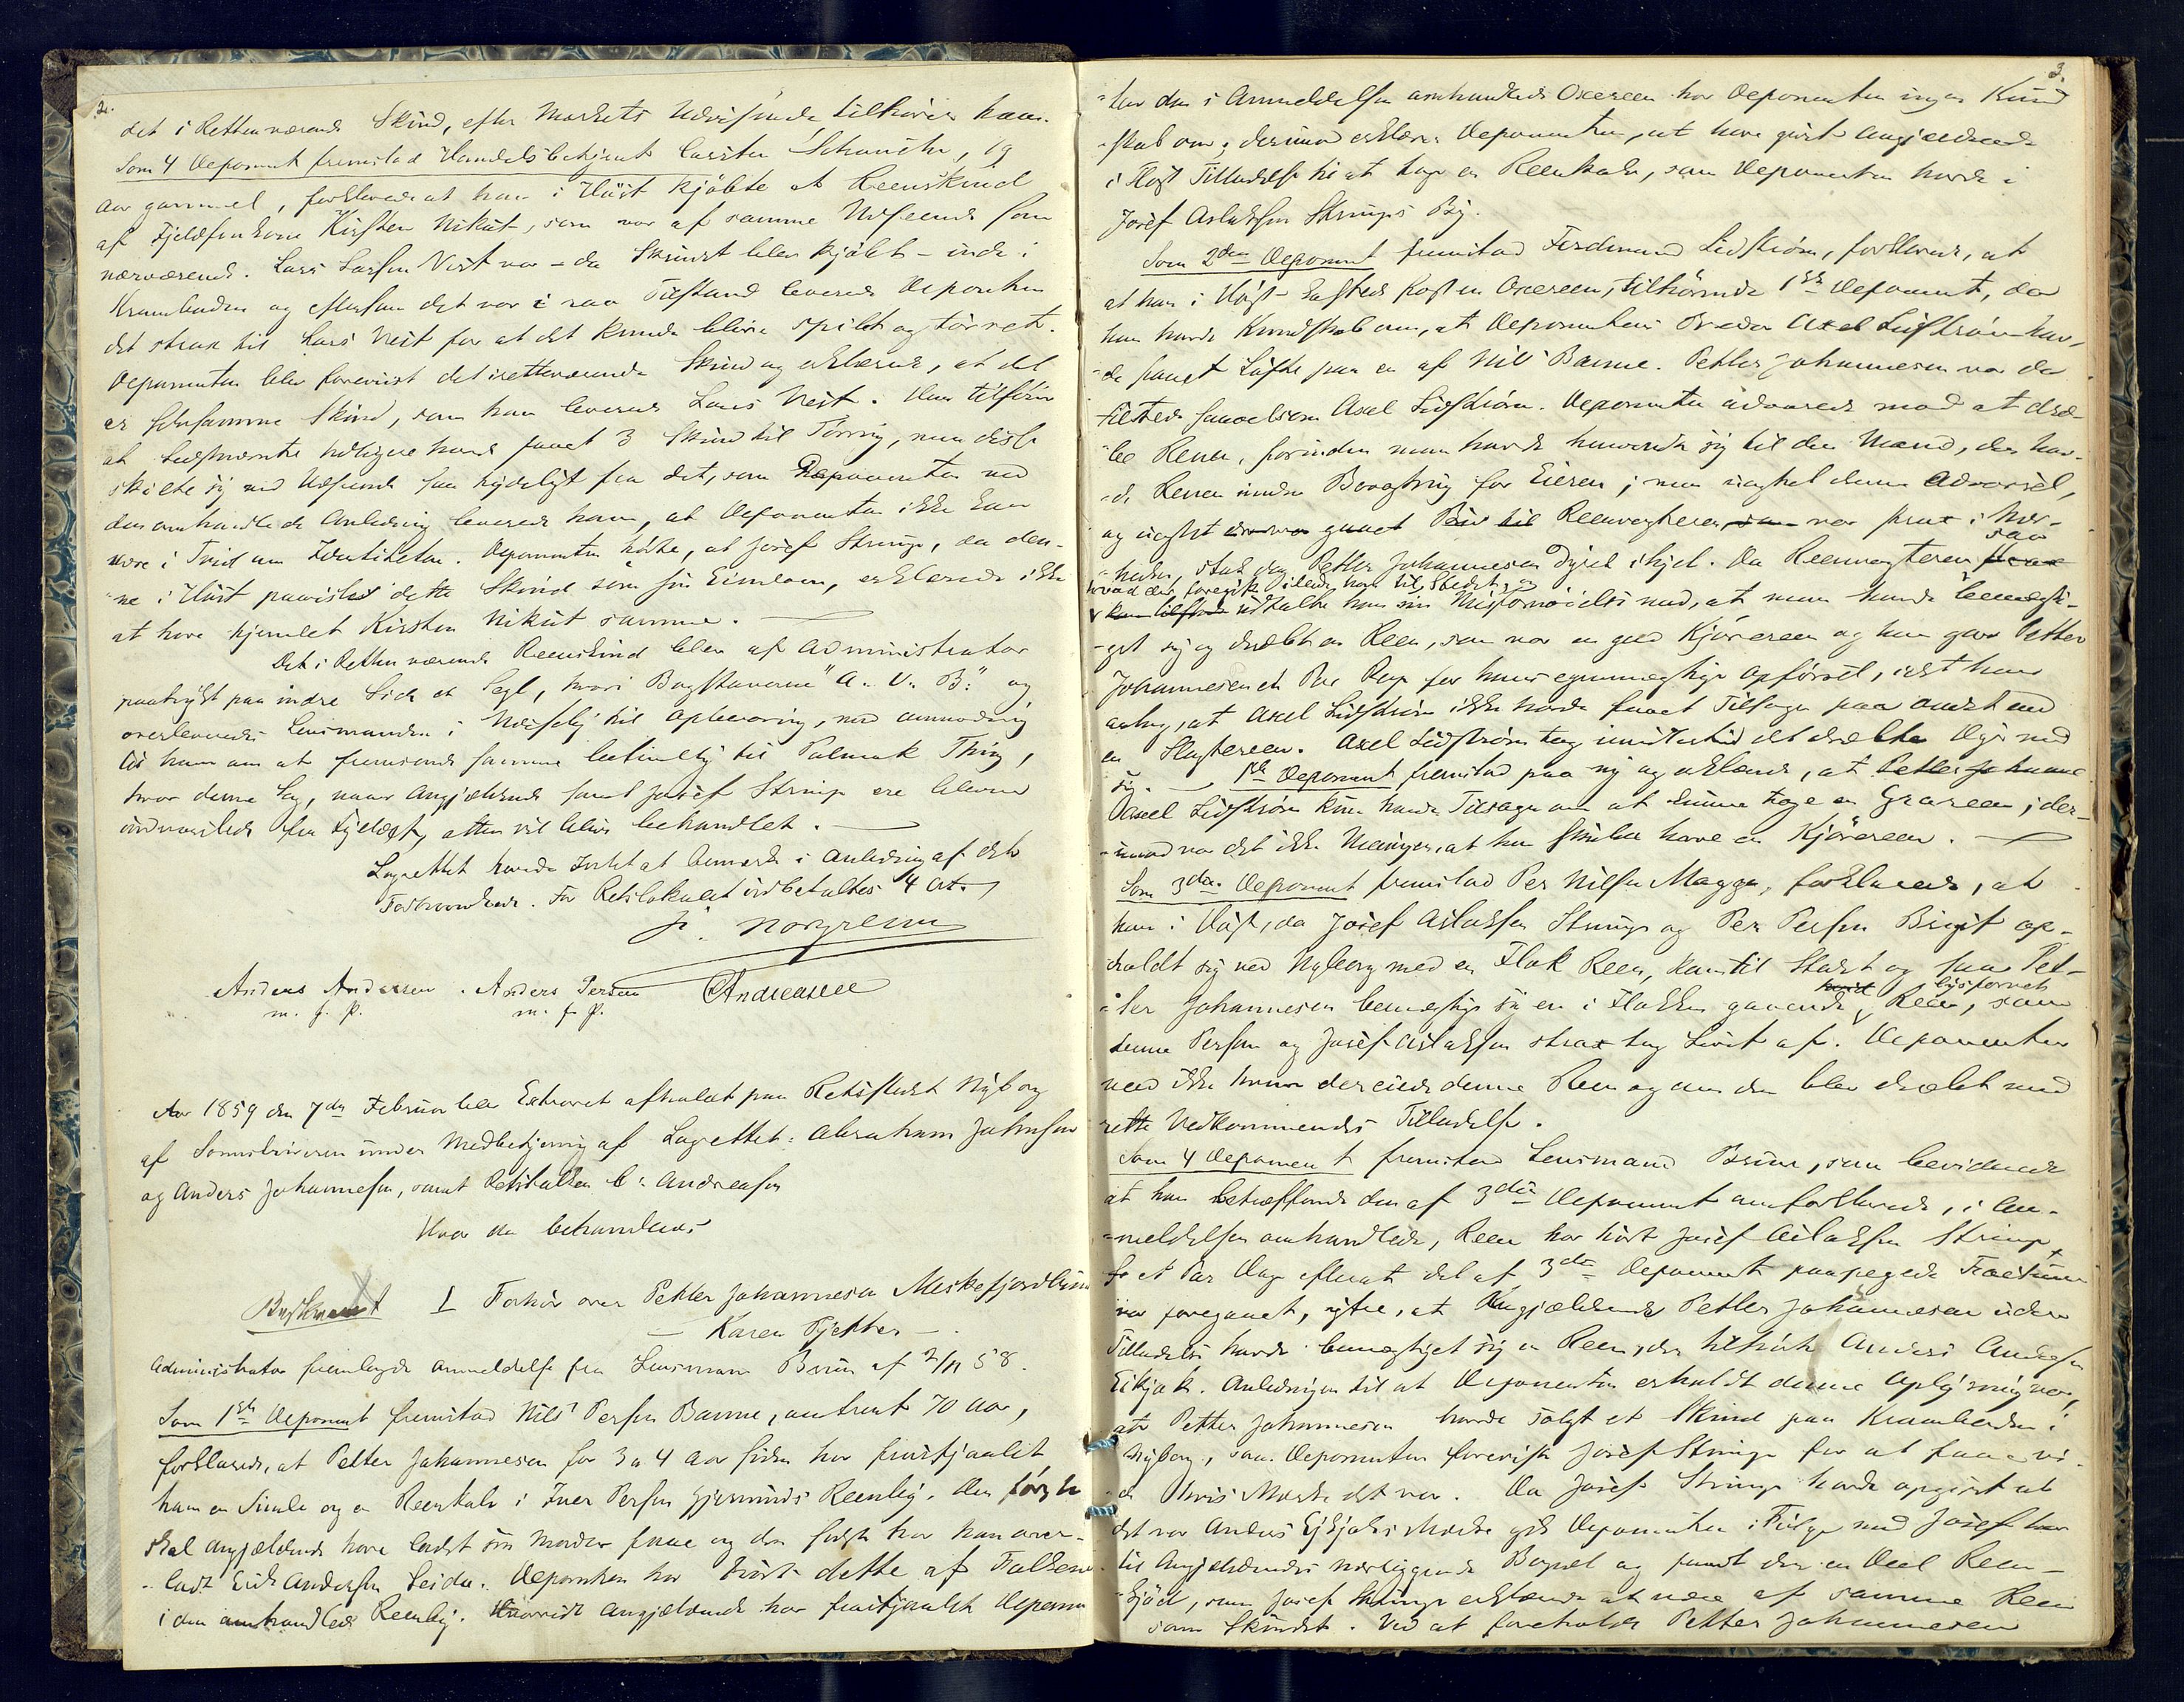 2.
det i Retten værende Skind, efter Mærkets Udvisende tilhører ham.
Som 4 Deponent fremstod Handelsbetjent Carsten Schanche, 19
Aar gammel, forklarede at han i Høst kjøbte et Reenskind
af Fjeldfinkone Kirsten Nikut, som var af samme Udseende som
nærværende. Lars Larsen Vest var - da Skindet blev kjøbt - inde i
Krambuden og eftersom det var i raa Tilstand leverede Deponenten
det strax til Lars Vest for at det kunde blive spilet og tørret.
Deponenten blev foreviist det iretteværende Skind og erklærede, at det
er selvsamme Skind, som han leverede Lars Vest. Han tilføier
at sidstnævnte tidligere havde faaet 3 Skind til Tørring, men disse
skilte sig ved Udseende saa tydeligt fra det, som Deponenten ved
den omhandlede Anledning leverede ham, at Deponenten ikke kan
være i Tvivl om Identiteten. Deponenten hørte, at Josef Strimp, da den-
ne i Høst paaviste dette Skind som sin Eiendom, erklærede ikke
at have hjemlet Kirsten Nikut samme.
Det i Retten værende Reenskind blev af Administrator
paatrykt paa indre Side et Segl, hvori Bogstaverne "A. V. B." og
overleveredes Lensmanden i Næsseby til Opbevaring, med Anmodning
til ham om at fremsende samme betimelig til Polmak Thing,
hvor denne Sag, naar Angjældende samt Josef Strimp ere blevne
indvarslede fra Fjeldet, atter vil blive behandlet.
Lagrettet havde Intet at bemærke i Anledning af dets
Forhandlede. For Retslokalet udbetaltes 4 Ort.
J. Norgrenn
Anders Andersen . Anders Persen CAndreasen
m. f. P. m. f. P.
Aar 1859 den 7de Februar blev Extraret afholdt paa Retsstedet Nyborg
af Sorenskriveren under Medbetjening af Lagrettet: Abraham Johnsen
og Anders Johannesen, samt Retsholder C: Andreasen
Hvor da behandledes
I Forhør over Petter Johannesen Meskefjordbund
— Karen Tjetter —
Administrator fremlagde Anmeldelse fra Lensmand Brun af 2/11 58.
Som 1ste Deponent fremstod Nils Persen Banne, omtrent 70 Aar,
forklarede, at Petter Johannesen for 3 a 4 Aar siden har frastjaalet
ham en Simle og en Reenkalv i Iver Persen Gjermunds Reenby. Den første
skal Angjældende have ladet sin Moder faae og den sidste har han over-
ladt Erik Andersen Seida. Deponenten har hørt dette af Folkene
i den omhandlede Reenby. Hvorvidt Angjældende har frastjaalet Depone-
3.
ten den i Anmeldelsen omhandlede Oxereen har Deponenten ingen Kund
skab om; derimod erklærer Deponenten, at have givet Angjældende
i Høst Tilladelse til at tage en Reenkalv, som Deponenten havde i
Josef Aslaksen Strimps By.
Som 2den Deponent fremstod Ferdinand Lidstrøm, forklarede, at
at han i Høst kastede Kast en Oxereen, tilhørende 1ste Deponent, da
han havde Kundskab om, at Deponentens Broder Axel Lidstrøm hav-
de faaet Løfte paa en af Nils Banne. Petter Johannesen var da
tilstede saavelsom Axel Lidstrøm. Deponenten advarede mod at dræ-
be Renen, forinden man havde henvendt sig til den Mand, der hav-
de Renen under Bevogtning for Eieren; men uagtet denne Advarsel,
og uagtet Reenvogteren var strax i Nær-
heden, stak dog Petter Johannesen Dyret ihjel. Da Reenvogteren saa
hvad der foregik ilede han til Stedet, og
udtalte han sin Misfornøielse med, at man havde bemægti-
get sig og dræbt en Reen, som var en god Kjørereen og han gav Petter
Johannesen et Par Rap for hans egenmægtige Opførsel, idet han
antog, at Axel Lidstrøm ikke havde faaet Tilsagn paa andet end
en Slagtereen. Axel Lidstrøm tog imidlertid det dræbte Dyr med
sig. — 1ste Deponent fremstod paa ny og erklærede, at
Axel Lidstrøm kun havde Tilsagn om at kunne tage en Graareen; der-
imod var det ikke Meningen, at han skulde have en Kjørereen.
Som 3die Deponent fremstod Per Nilsen Magga, forklarede, at
han i Høst, da Josef Aslaksen Strimp og Per Persen Birgit op-
holdt sig ved Nyborg med en Flok Reen, kom til Stedet og saae Pet-
ter Johannesen bemægtige sig en i Flokken gaaende lysfarvet Reen, som
denne Person og Josef Aslaksen strax tog Livet af. Deponenten
veed ikke hvem der eiede denne Reen og om den blev dræbt med
rette Vedkommendes Tilladelse.
Som 4 Deponent fremstod Lensmand Brun, som bevidnede
at han betræffende den af 3die Deponent omforklarede, i An-
meldelsen omhandlede, Reen har hørt Josef Aslaksen Strimp,
et Par Dage efterat det af 3die Deponent paapegede Factum
var foregaaet, ytre, at Angjældende Petter Johannesen uden
Tilladelse havde bemægtiget sig en Reen, der tilhørte Anders Andersen
Eikjok. Anledningen til at Deponenten erholdt denne Oplysning var,
at Petter Johannesen havde solgt et Skind paa Kramboden i
Nyborg, som Deponenten foreviste Josef Strimp for at faae vi-
de Hvis Mærke det var. Da Josef Strimp havde opgivet at
det var Anders Ejkjoks Mærke gik Deponenten i Følge med Josef
til Angjældendes nærliggende Bopæl og fandt der en Deel Reen-
kjød, som Josef Strimp erklærede at være af samme Reen
som Skindet. Ved at foreholde Petter Johannesen